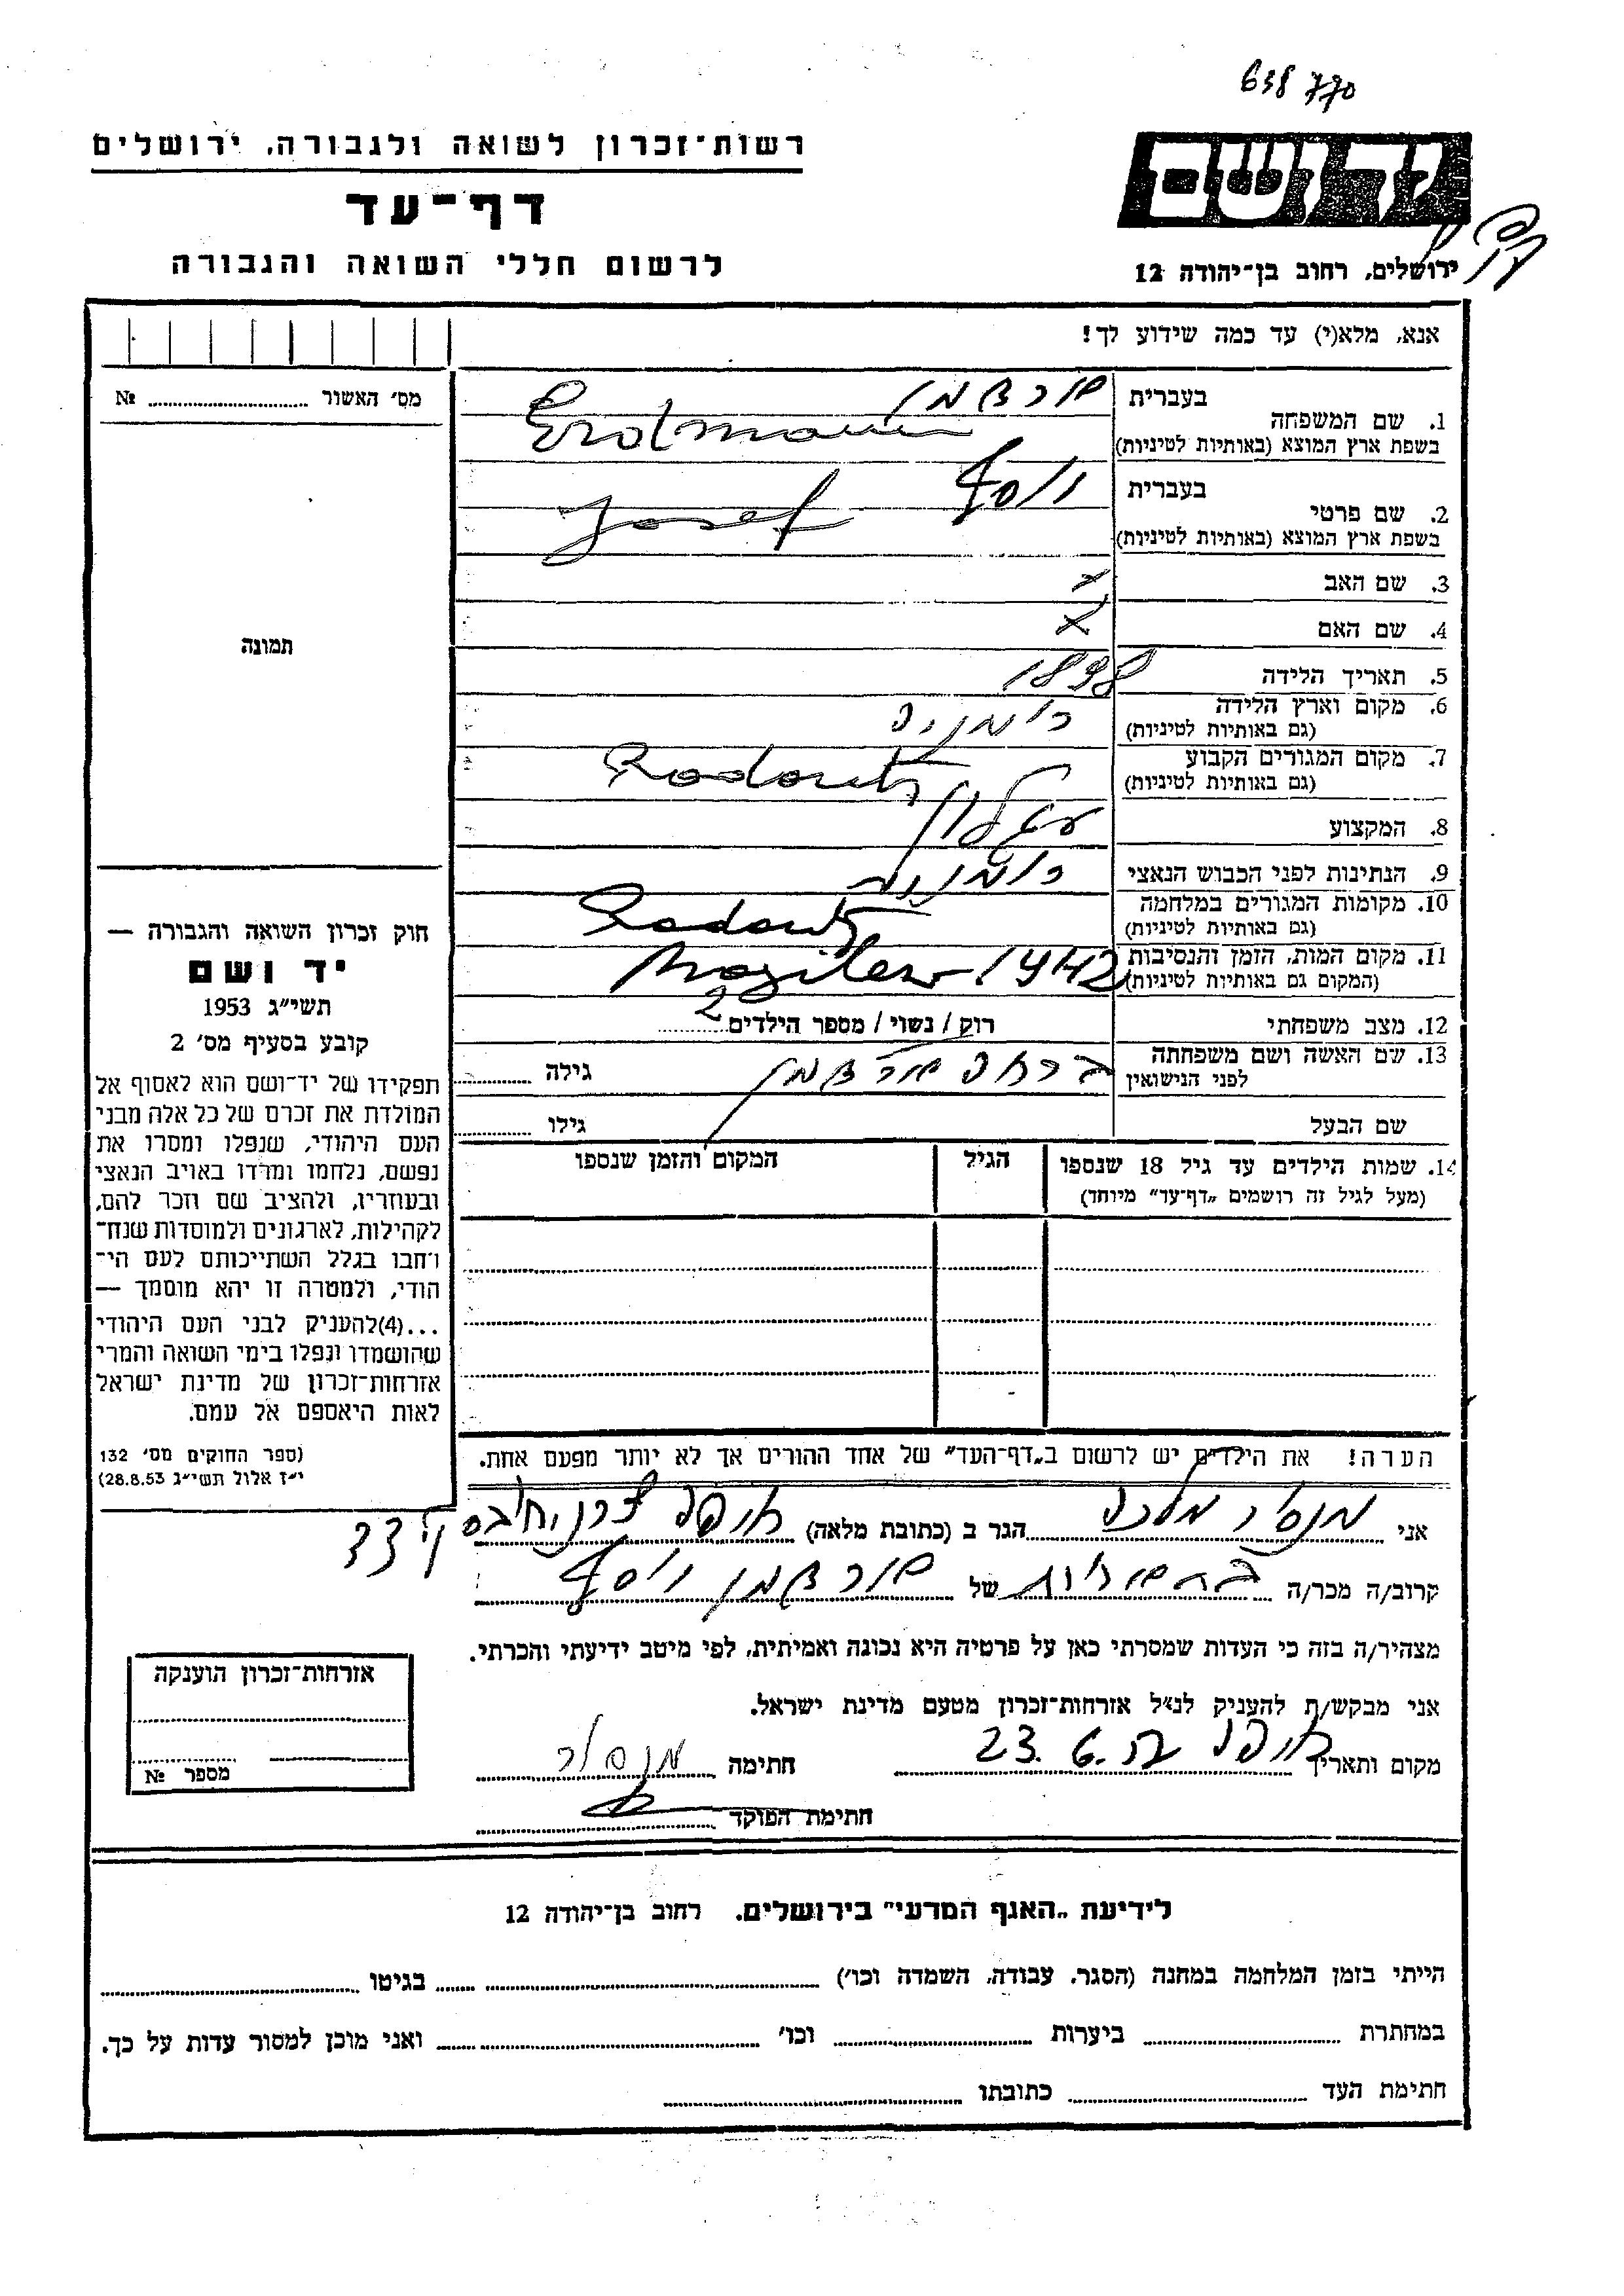 638 770
רשות־זכרון לשואה ולגבורה, ירושלים
יד ושם
דף־עד
לרשום חללי השואה והגבורה
ירושלים, רחוב בן־יהודה 12
אנא, מלא(י) עד כמה שידוע לך!
מס׳ האשור ........ №
1. שם המשפחה
בעברית
בשפת ארץ המוצא (באותיות לטיניות)
Erdmann
2. שם פרטי
בעברית יוסף
בשפת ארץ המוצא (באותיות לטיניות) Josef
3. שם האב
4. שם האם X
5. תאריך הלידה 1898
6. מקום וארץ הלידה
(גם באותיות לטיניות)
רומניה
7. מקום המגורים הקבוע
(גם באותיות לטיניות)
Radoutz
8. המקצוע
9. הנתינות לפני הכבוש הנאצי רומניה
10. מקומות המגורים במלחמה
(גם באותיות לטיניות)
Radoutz
11. מקום המות, הזמן והנסיבות
(המקום גם באותיות לטיניות)
Mogilew 1942
12. מצב משפחתי רוק / נשוי / מספר הילדים 2
13. שם האשה ושם משפחתה
לפני הנישואין
גילה
שם הבעל גילו
14. שמות הילדים עד גיל 18 שנספו
(מעל לגיל זה רושמים „דף־עד״ מיוחד)
הגיל
המקום והזמן שנספו
תמונה
חוק זכרון השואה והגבורה —
יד ושם
תשי״ג 1953
קובע בסעיף מס׳ 2
תפקידו של יד־ושם הוא לאסוף אל
המולדת את זכרם של כל אלה מבני
העם היהודי, שנפלו ומסרו את
נפשם, נלחמו ומרדו באויב הנאצי
ובעוזריו, ולהציב שם וזכר להם,
לקהילות, לארגונים ולמוסדות שנח־
רחבו בגלל השתייכותם לעם הי־
הודי, ולמטרה זו יהא מוסמך —
...(4)להעניק לבני העם היהודי
שהושמדו ונפלו בימי השואה והמרי
אזרחות־זכרון של מדינת ישראל
לאות היאספם אל עמם.
(ספר החוקים מס׳ 132
י״ז אלול תשי״ג 28.8.53)
הערה! את הילדים יש לרשום ב„דף־העד״ של אחד ההורים אך לא יותר מפעם אחת.
אני מנסר מלכה הגר ב (כתובת מלאה) חיפה
קרוב/ה מכר/ה של יוסף
מצהיר/ה בזה כי העדות שמסרתי כאן על פרטיה היא נכונה ואמיתית, לפי מיטב ידיעתי והכרתי.
אני מבקש/ת להעניק לנ״ל אזרחות־זכרון מטעם מדינת ישראל.
מקום ותאריך חיפה 23. 6. חתימה מנסר
חתימת הפוקד
אזרחות־זכרון הוענקה
מספר №
לידיעת „האגף המדעי״ בירושלים. רחוב בן־יהודה 12
הייתי בזמן המלחמה במחנה (הסגר, עבודה, השמדה וכו׳) בגיטו
במחתרת ביערות וכו׳ ואני מוכן למסור עדות על כך.
חתימת העד כתובתו